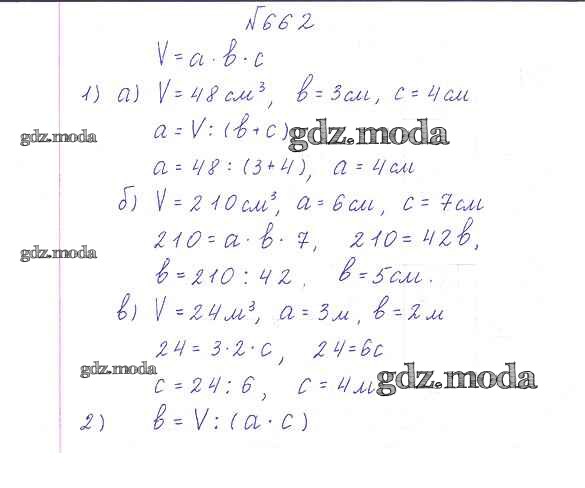 №662
V = a · b · c
1) а) V = 48 см³, b = 3 см, c = 4 см
a = V : (b + c) gdz.moda
gdz.moda
a = 48 : (3 + 4), a = 4 см
б) V = 210 см³, a = 6 см, c = 7 см
210 = a · b · 7, 210 = 42b,
gdz.moda
b = 210 : 42, b = 5 см.
в) V = 24 м³, a = 3 м, b = 2 м
24 = 3 · 2 · c, 24 = 6c
gdz.moda
c = 24 : 6, c = 4 м gdz.moda
2) b = V : (a · c)